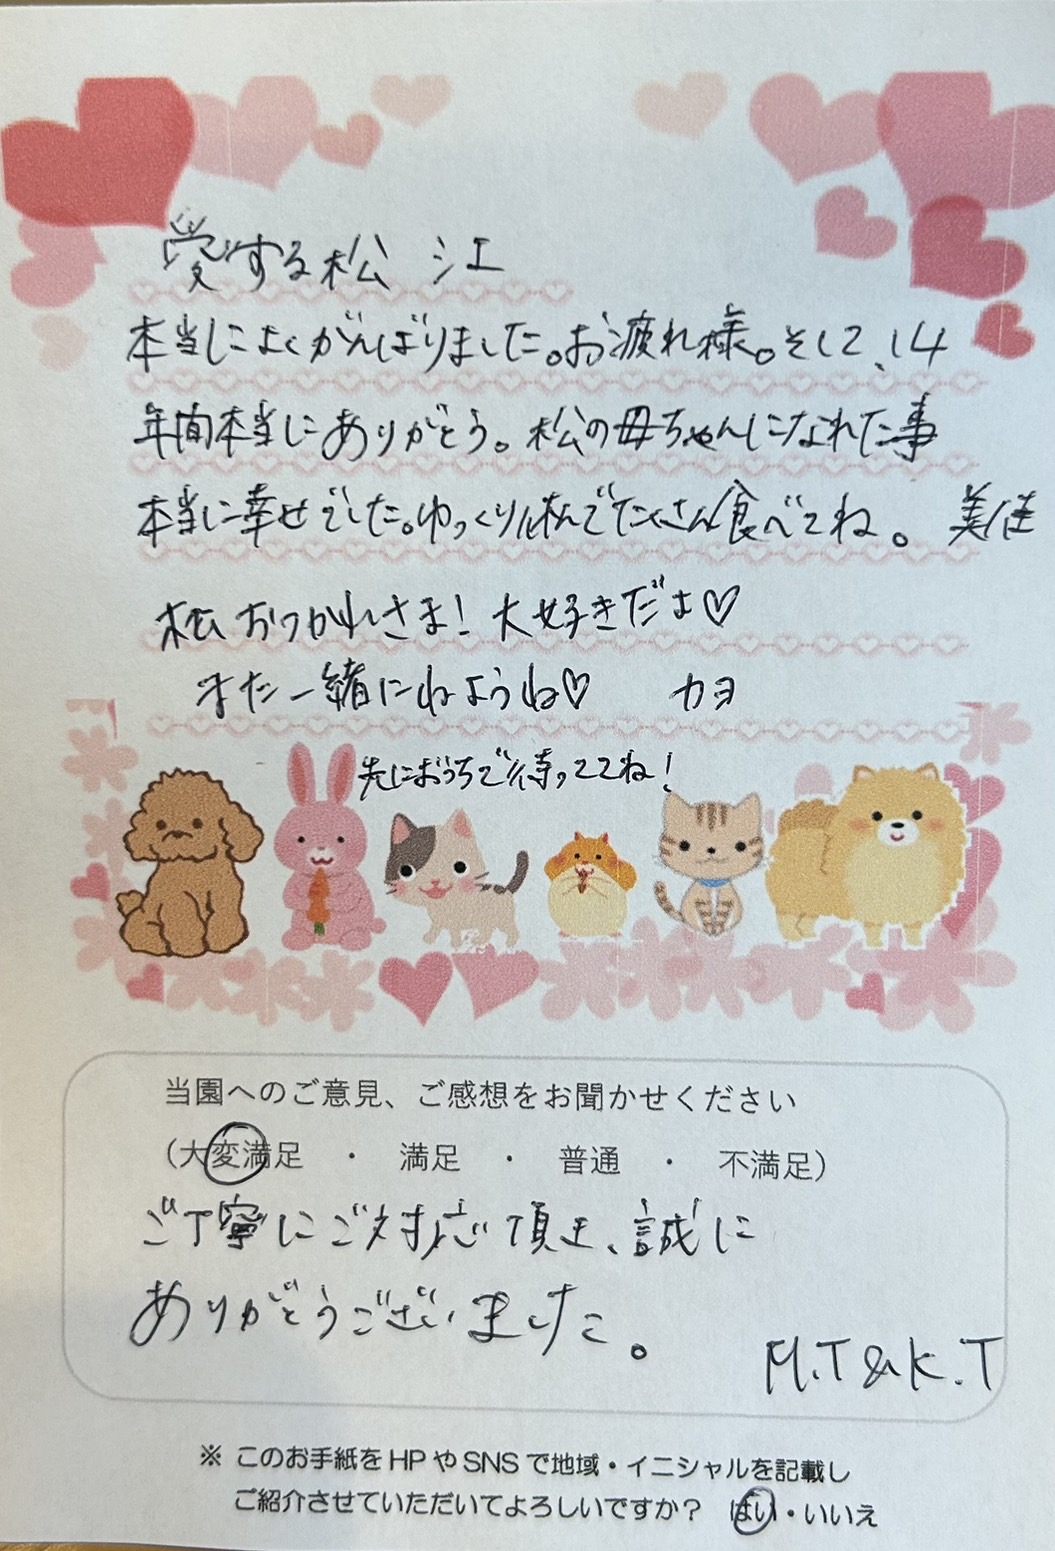 愛する松 江
本当によくがんばりました。お疲れ様。そして、14
年間本当にありがとう。松の母ちゃんになれた事
本当に幸せでした。ゆっくり休んでたくさん食べてね。 美佳
松おつかれさま！大好きだよ♡
また一緒にねようね♡ カヨ
先におうちで待っててね！
当園へのご意見、ご感想をお聞かせください
（大変満足 ・ 満足 ・ 普通 ・ 不満足）
ご丁寧にご対応頂き、誠に
ありがとうございました。
M.T&K.T
※ このお手紙をHPやSNSで地域・イニシャルを記載し
ご紹介させていただいてよろしいですか？ はい・いいえ